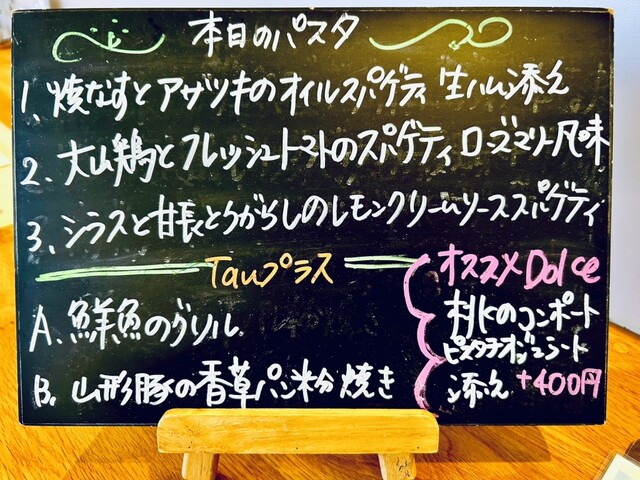 本日のパスタ
1. 焼なすとアサツキのオイルスパゲティ 生ハム添え
2. 大山鶏とフレッシュトマトのスパゲティ ローズマリー風味
3. シラスと甘長とうがらしのレモンクリームソーススパゲティ
Tauプラス
A. 鮮魚のグリル
B. 山形豚の香草パン粉焼き
オススメDolce
桃のコンポート
ピスタチオジェラート
添え +400円